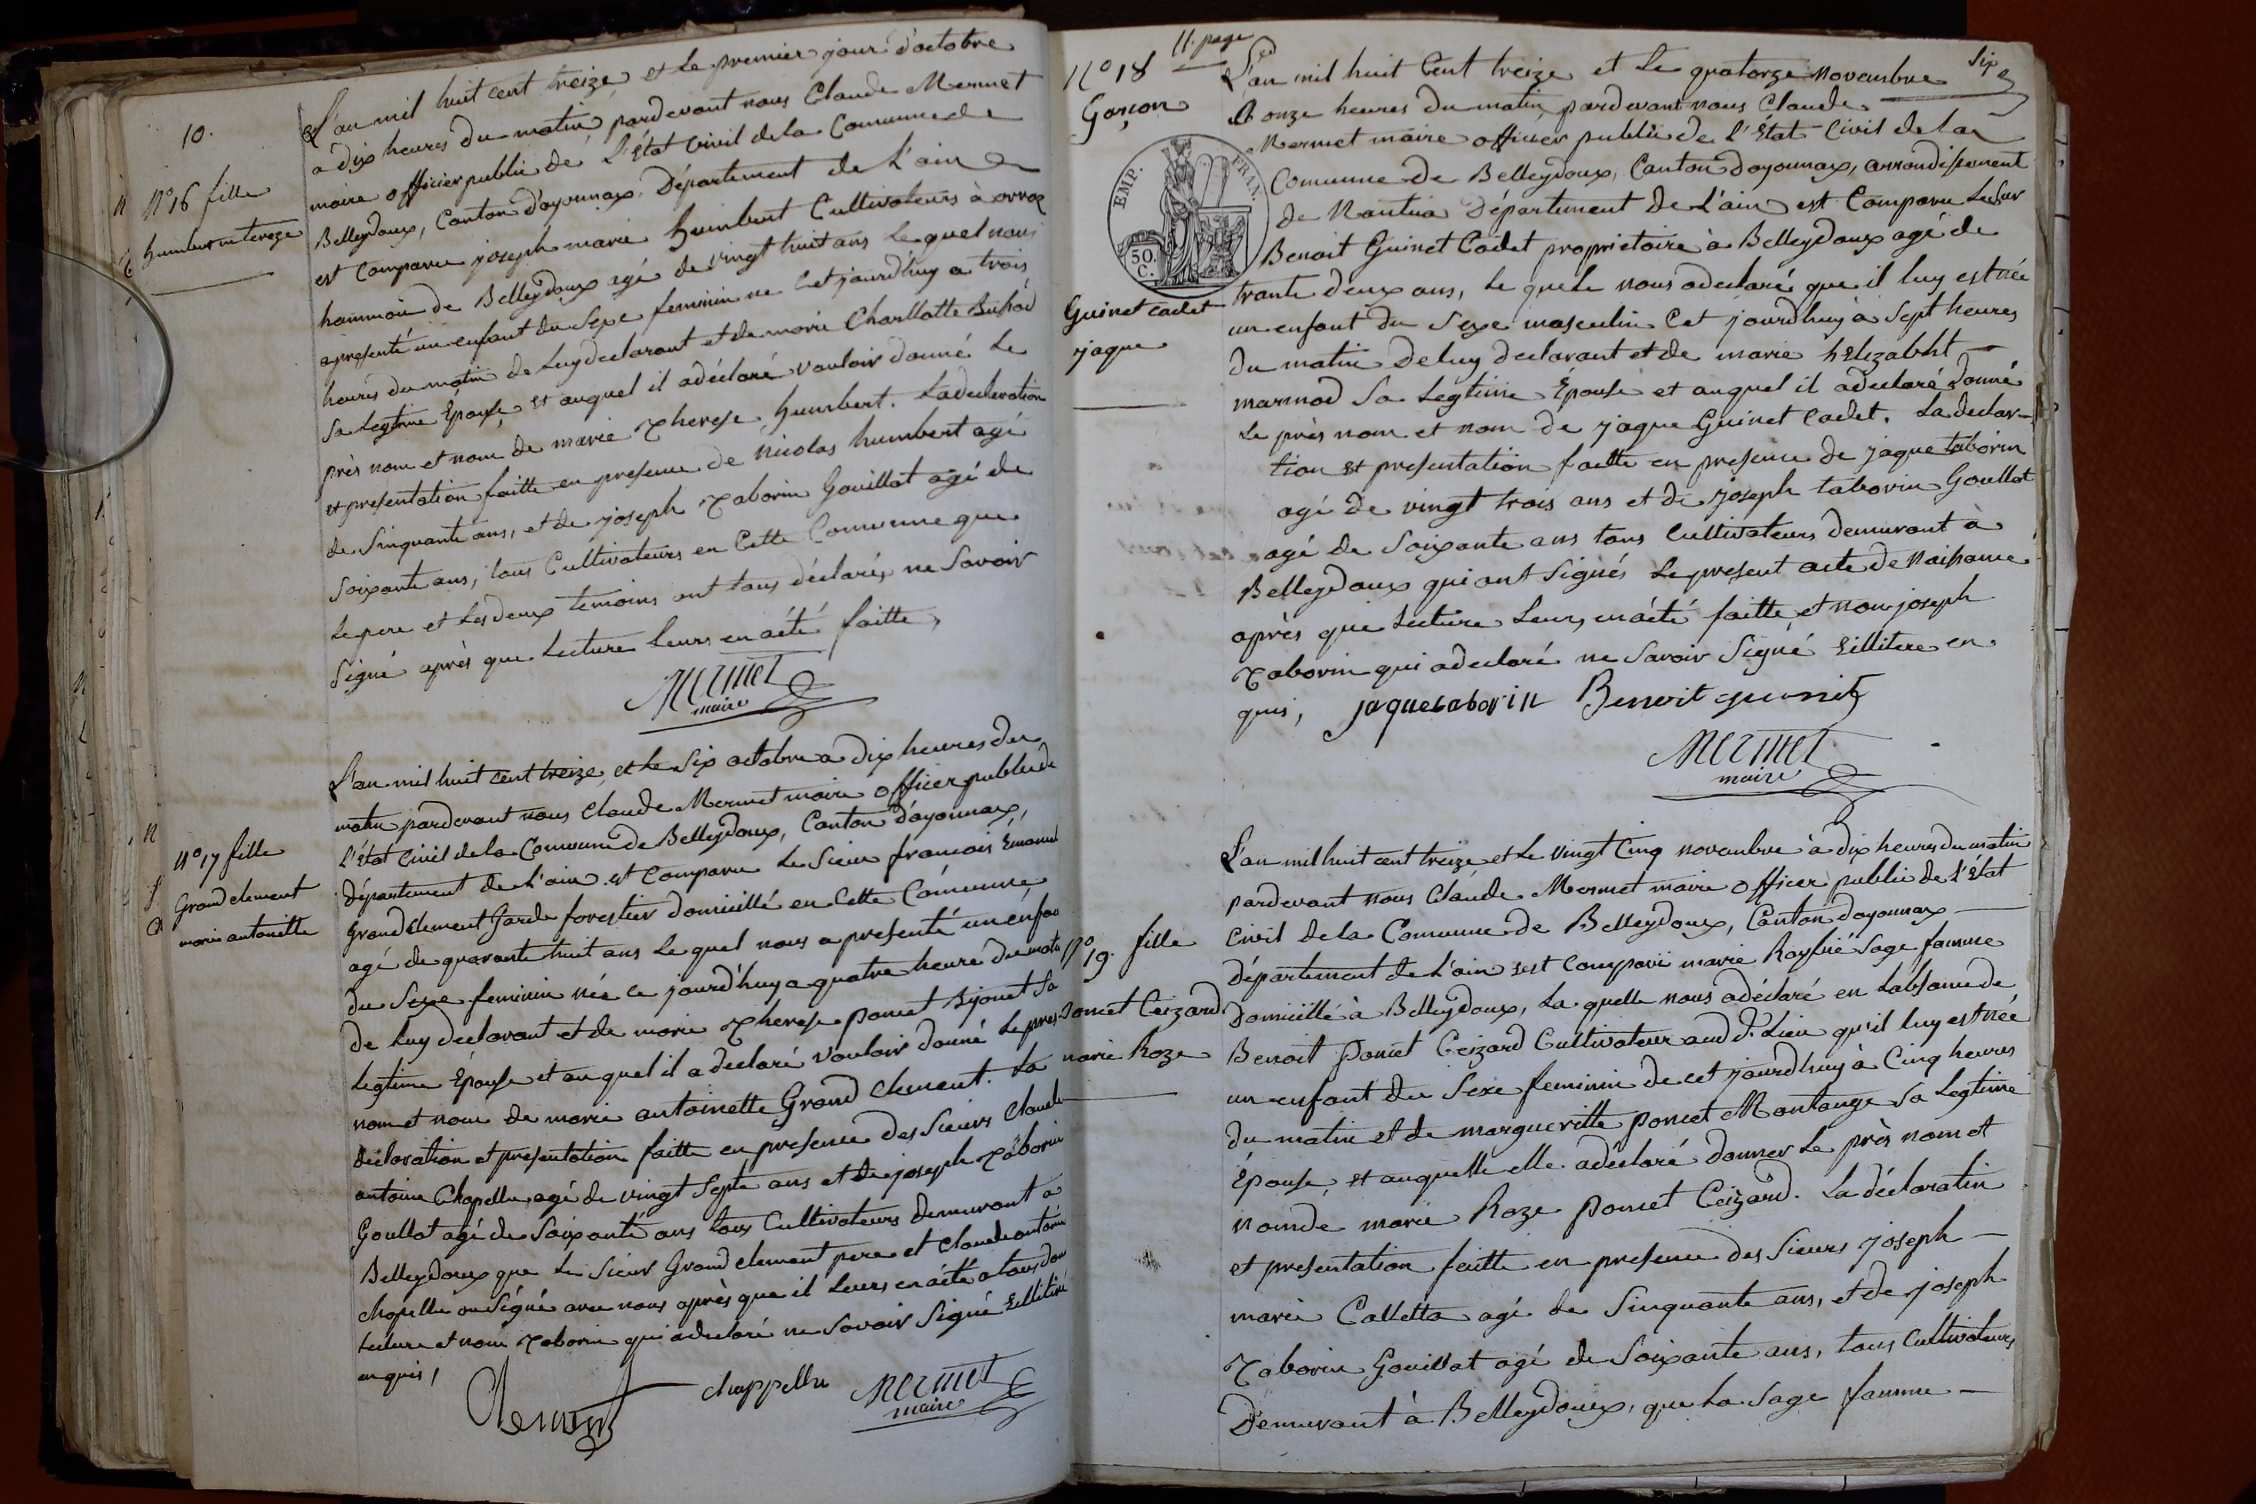 10.
N° 16 fille
humbert m tereze
L'an mil huit cent treize et le premier jour d'octobre
a dix heures du matin pardevant nous Claude Mermet
maire officier public de L'État Civil de la Comune de
Belleydoux, Canton d'ayonnax. Département de L'ain
est Comparu joseph marie humbert Cultivateurs à
hammau de Belleydoux agé de vingt huit ans le quel nous
a presenté un enfant du Sexe feminin ne Cet jourd'huy a trois
heures du matin de Luy declarant et de marie Charllotte Buhod
Sa Legtime Épouse, et auquel il a déclaré vouloir donné Le
près nom et nom de marie Therese humbert. La declaration
et presentation faitte en presence de Nicolas humbert agé
de Sinquante ans, et de joseph Taborin Gouillot agé de
Soixante ans, tous Cultivateurs en Cette Comunne que
Le pere et Les deux temoins ont tous déclaré, ne Savoir
Signé après que Lecture Leurs en a été faitte,
Mermet
maire
N° 17 fille
Grand clement
marie antoinette
L'an mil huit cent treize, et le Six octobre a dix heures du
matin pardevant nous Claude Mermet maire officier public de
L'État Civil de la Comune de Belleydoux, Canton d'ayonnax,
Département de L'ain est Comparu Le Sieur francois Émanuel
Grand Clement Garde forestier domicillé en Cette Comunne,
agé de quarante huit ans Le quel nous a presenté un enfan
du Sexe feminin née ce jourd'huy a quatre heure du matin
de Luy declarant et de marie Therese poncet Bijonet Sa
Legtime Épouse et au quel il a declaré vouloir donné Le pres
nom et nom de marie antoinette Grand Clement. La
déclaration et presentation faitte en presence des Sieurs Claude
antoine Chapellu agé de vingt Septe ans et de joseph Taborin
Goullot agé de Soixante ans tous Cultivateurs demurant a
Belleydoux que Le Sieur Grand clement pere et Claude antoine
chapellu on Signé avec nous après que il Leurs en a été a tous don
Lecture et nom Taborin qui a declaré ne Savoir Signé Lillitere
en quis,
Clement chappellu Mermet
maire
11. page
Six
N° 18
Garçon
EMP. FRAN.
50. C.
Guinet cadet
jaque
L'an mil huit Cent treize et Le quatorze novembre
A onze heures du matin pardevant nous Claude
Mermet maire officier public de L'État Civil de la
Comunne de Belleydoux, Canton d'ayonnax, arrondissement
de Nantua Département de L'ain est Comparu Le Sieur
Benoit Guinet Cadet proprietaire à Belleydoux agé de
trante deux ans, Le quele nous a déclaré que il luy est née
un enfant du Sexe masculin Cet jourd'huy à Sept heures
du matin de luy declarant et de marie helizabht
marmod Sa Legtime Épouse et auquel il a declaré donné
Le près nom et nom de jaque Guinet Cadet. La declar-
tion et presentation faitte en presence de jaque taborin
agé de vingt trois ans et de joseph taborin Goullot
agé de Soixante ans tous Cultivateurs demurant à
Belleydoux qui ont Signés Le present acte de Naissance
après que Lecture Leurs en a été faitte et nom joseph
Taborin qui a declaré ne Savoir Signé Lillitere en
quis, jaque tabor in Benoit guinet
Mermet
maire
N° 19. fille
Poncet Ceizard
marie Roze
L'an mil huit cent treize et Le vingt Cinq novembre à dix heures du matin
pardevant nous Claude Mermet maire officier public de L'État
Civil de la Comunne de Belleydoux, Canton d'ayonnax
département de L'ain est Comparü marie sage famme
Domicillé à Belleydoux, La quelle nous a déclaré en L'absance de
Benoit Poncet Ceizard Cultivateur aud.t Lieu qu'il luy est née
un enfant du Sexe feminin de cet jourd'huy à Cinq heures
du matin et de margueritte poncet Montange Sa Legtime
Épouse, et auquelle elle a déclaré donner Le près nom et
nom de marie Roze poncet Ceizard. La déclaratin
et presentation faitte en presence des Sieurs joseph
marie Calletta agé de Sinquante ans, et de joseph
Taborin Gouillot agé de Soixante ans, tous Cultivateurs
Demurant à Belleydoux, que La Sage famme